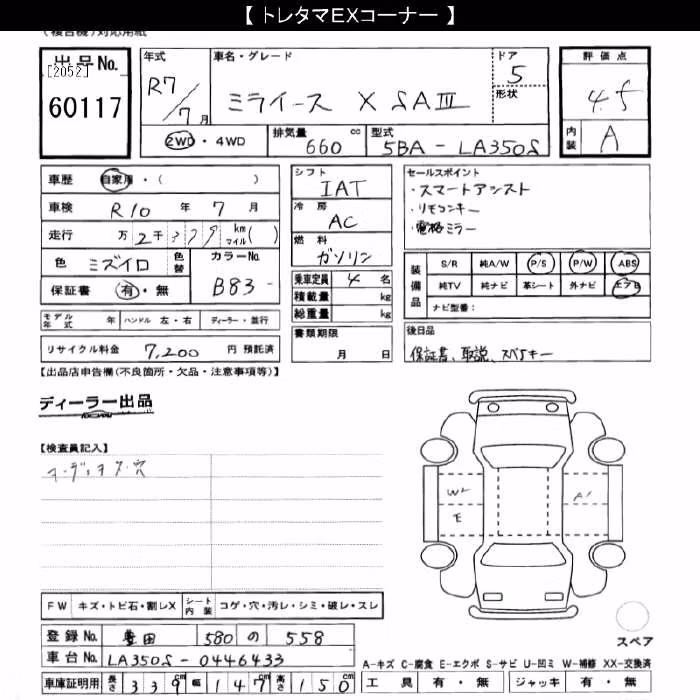 【 トレタマEXコーナー 】
(複合機)対応用紙
出品No.
[2052]
60117
年式
R7/7月
車名・グレード
ミライース X SAⅢ
ドア
5
形状
評価点
4.5
内装
A
2WD・4WD
排気量 cc
660
型式
5BA-LA350S
車歴 自家用・( )
車検 R10年 7月
走行 万 2千 km マイル( )
色 ミズイロ 色替
カラーNo.
B83-
保証書 有・無
モデル年式 年 ハンドル 左・右 ディーラー・並行
リサイクル料金 7,200 円 預託済
シフト
IAT
冷房
AC
燃料
ガソリン
乗車定員 4 名
積載量 kg
総重量 kg
書類期限
月 日
セールスポイント
・スマートアシスト
・リモコンキー
・電格ミラー
装備品
S/R 純A/W P/S P/W ABS
純TV 純ナビ 革シート 外ナビ エアB
ナビ型番:
後日品
保証書、取説、スペアキー
【出品店申告欄(不良箇所・欠品・注意事項等)】
ディーラー出品
【検査員記入】
オーディオ欠・穴
W2
E
A1
スペア
FW キズ・トビ石・割レX シート内装 コゲ・穴・汚レ・シミ・破レ・スレ
登録No. 豊田 580 の 558
車台No. LA350S-0446433
車庫証明用 長さ 339cm 幅 147cm 高さ 150cm
A-キズ C-腐食 E-エクボ S-サビ U-凹ミ W-補修 XX-交換済
工具 有・無 ジャッキ 有・無